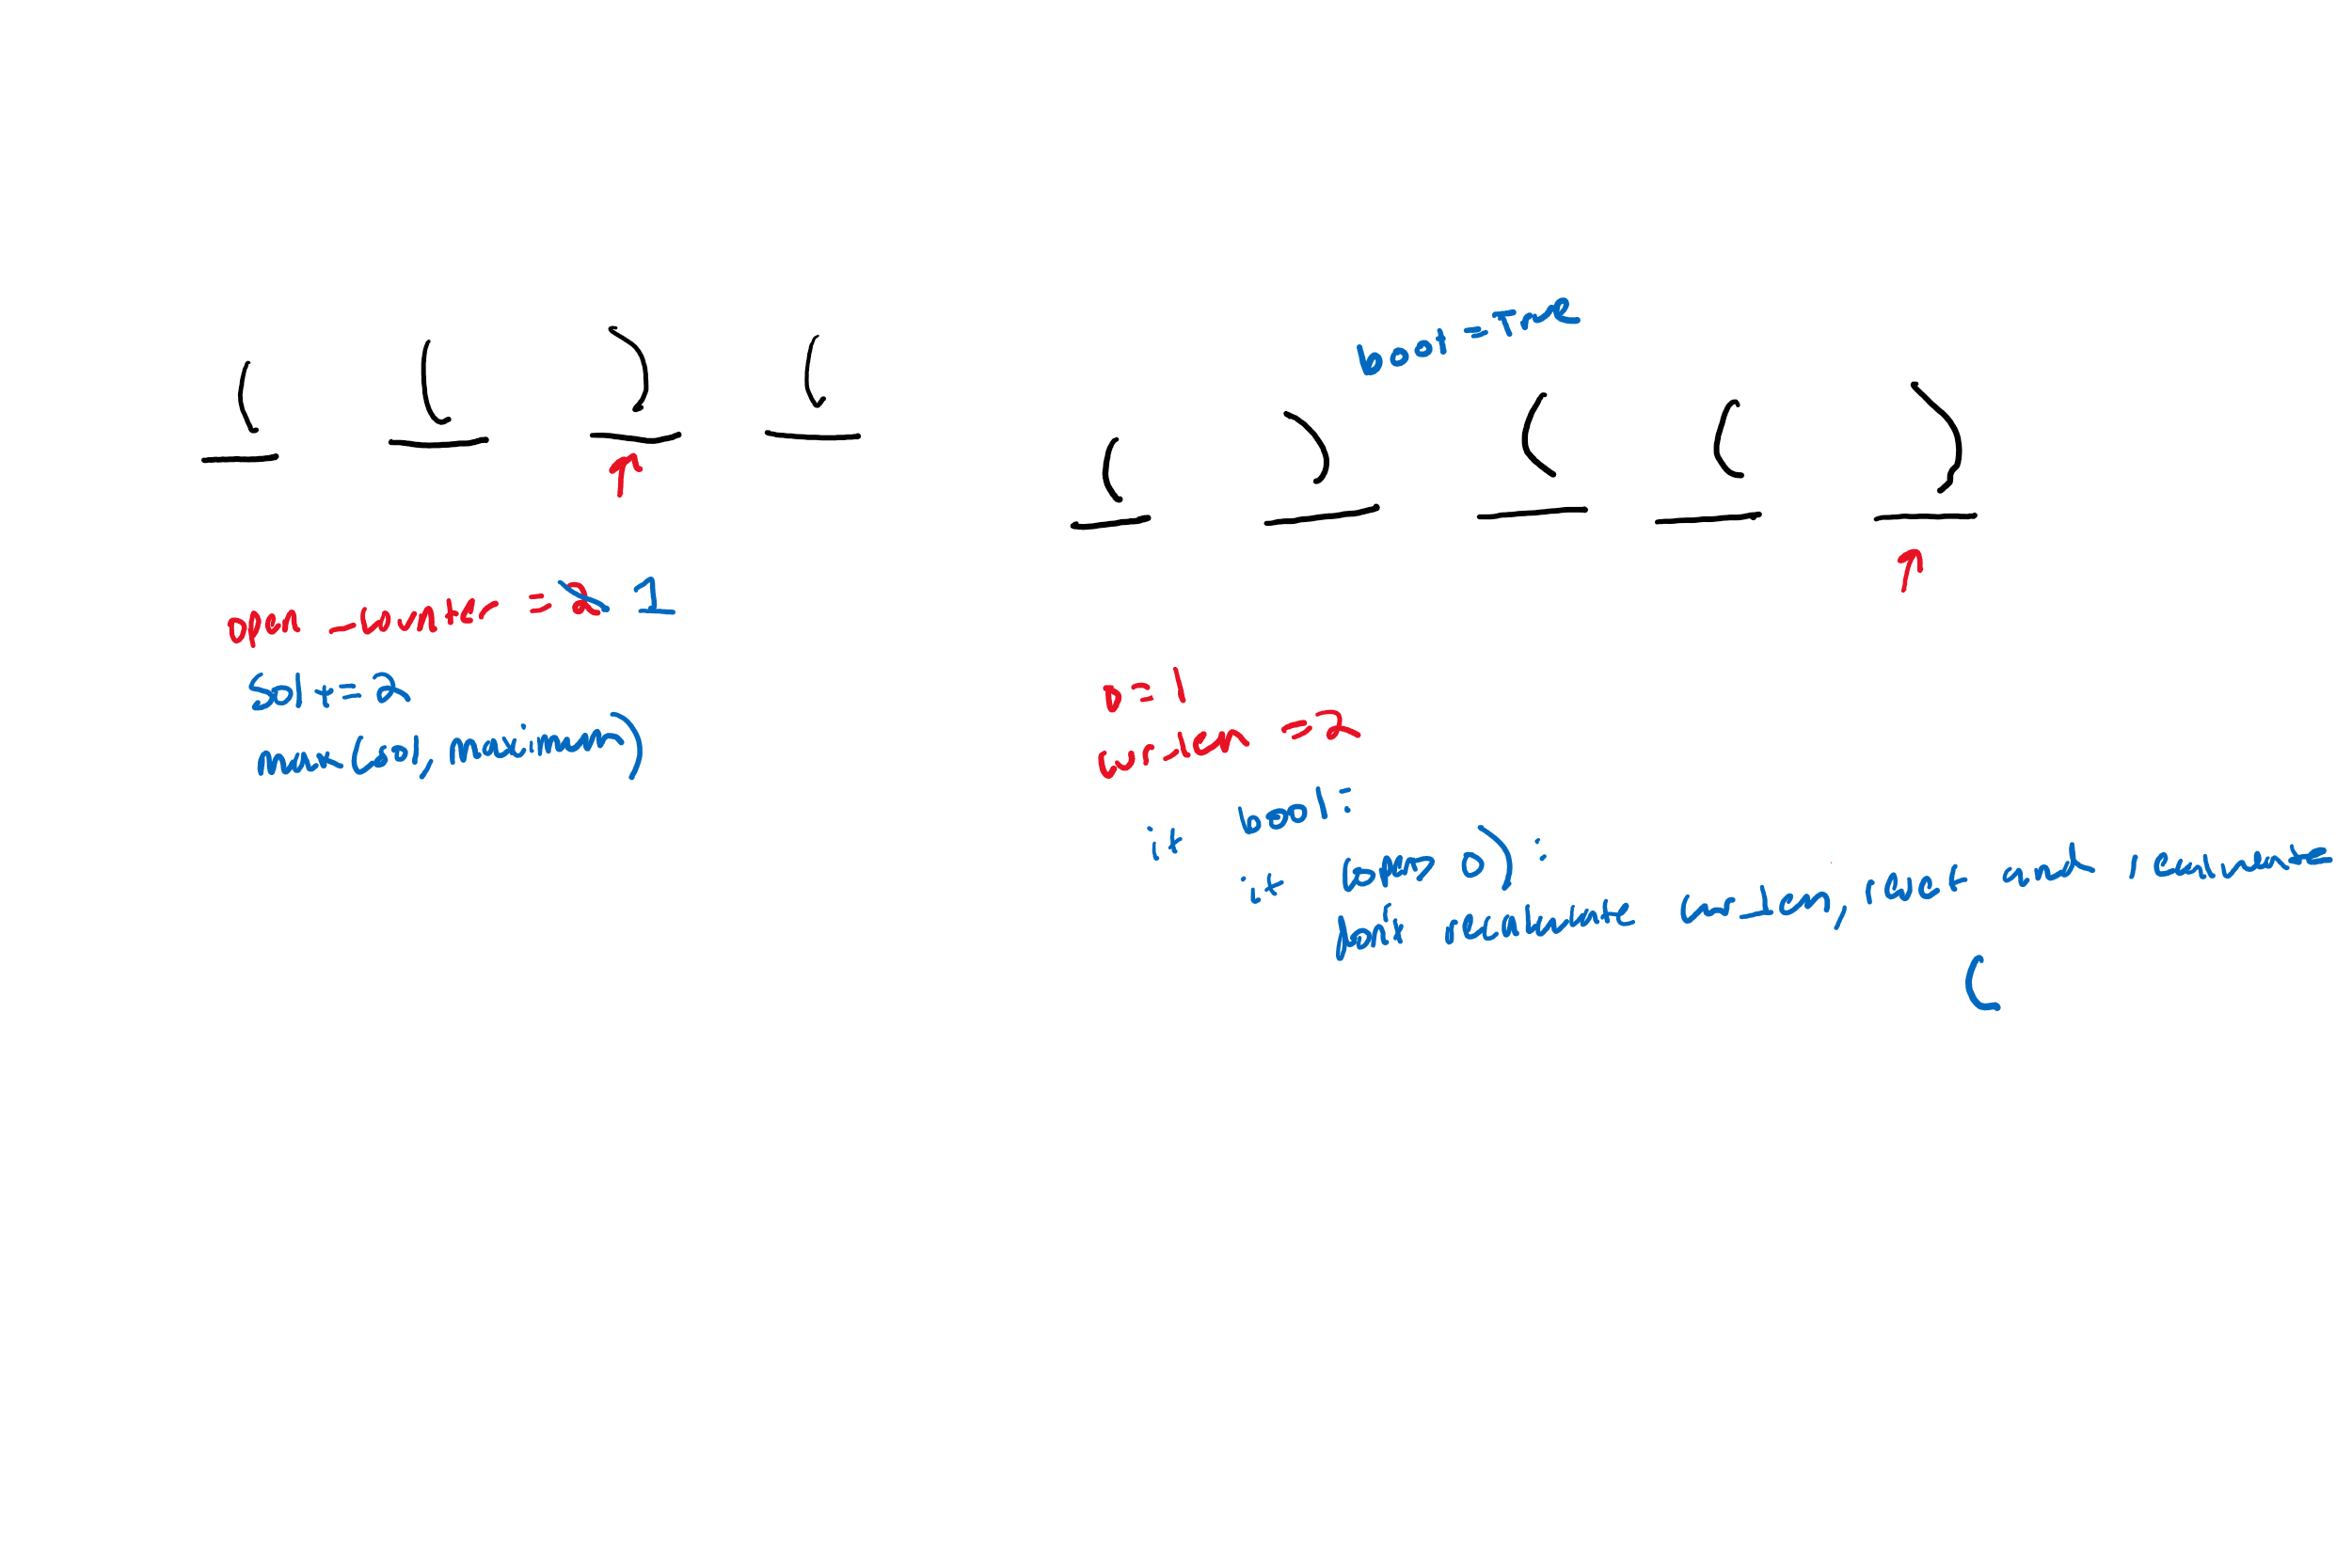 ( ( ) (
open_counter = 2 1
sol += 2
max(sol, maximum)
bool = True
( ) ( ( )
o = 1
curlen = 2
if bool:
if (open > 0):
don't recalculate curr_len, reset and recalculate
(